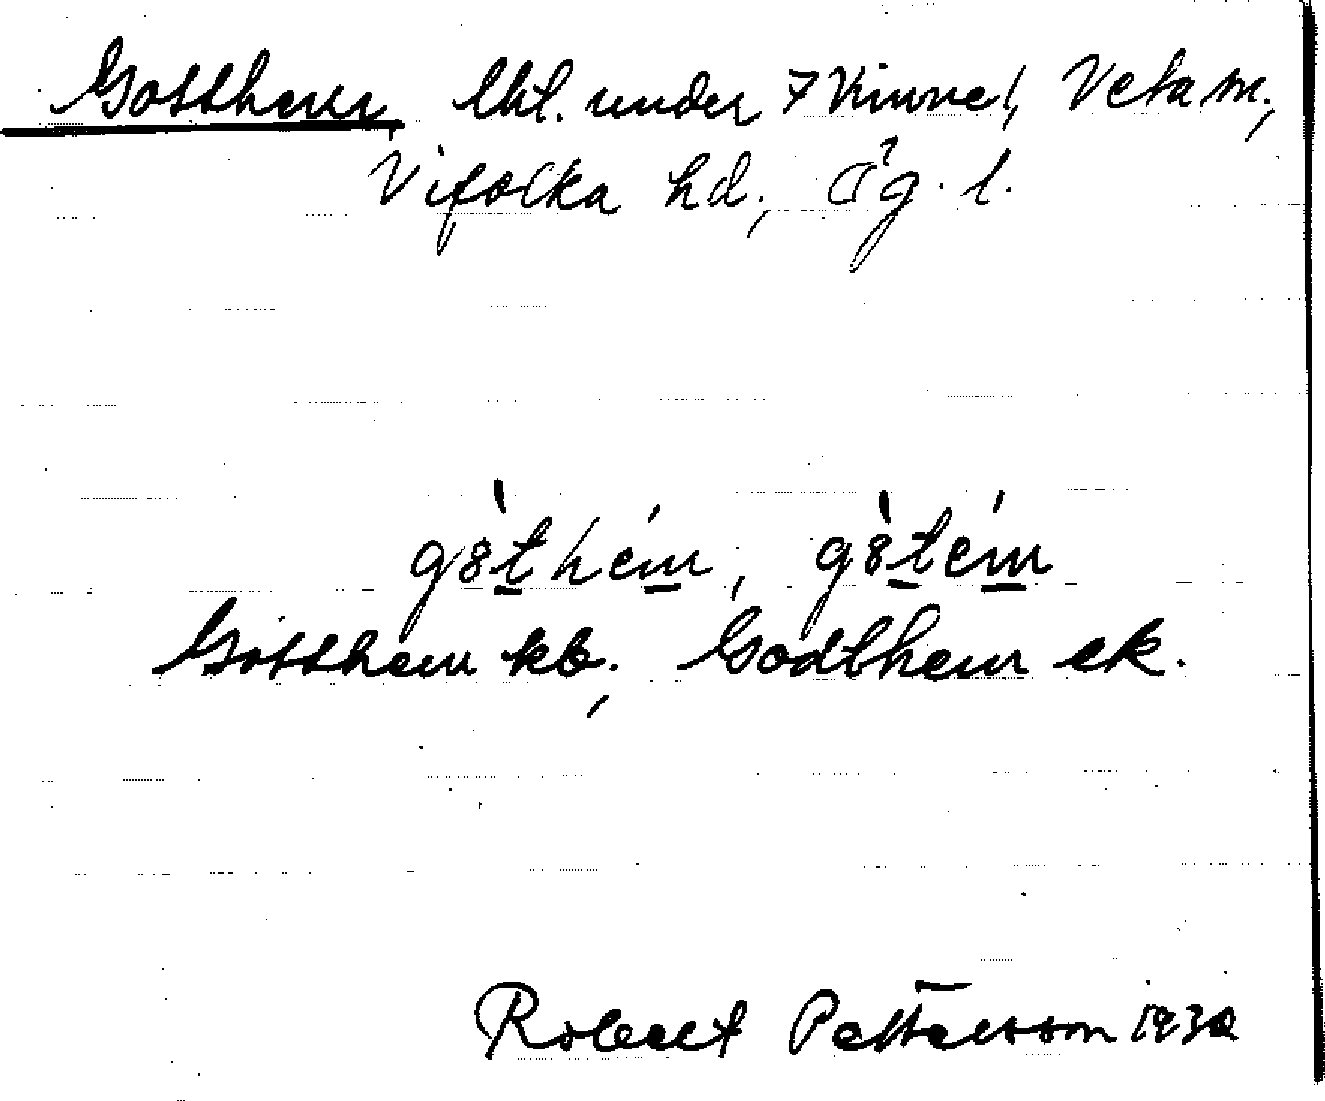 Gotthem, lht. under 7 Kinne l, Veta sn.,
Vifolka hd., Ög. l.
gòthém, gòtém
Gotthem kb., Godthem ek.
Robert Pettersson 1930